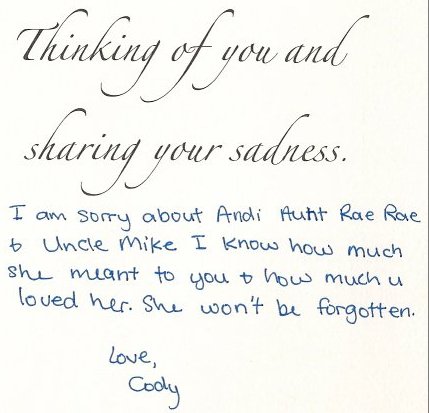 Thinking of you and
sharing your sadness.
I am sorry about Andi Aunt Rae Rae
& Uncle Mike I know how much
she meant to you & how much u
loved her. She won't be forgotten.
Love,
Cody